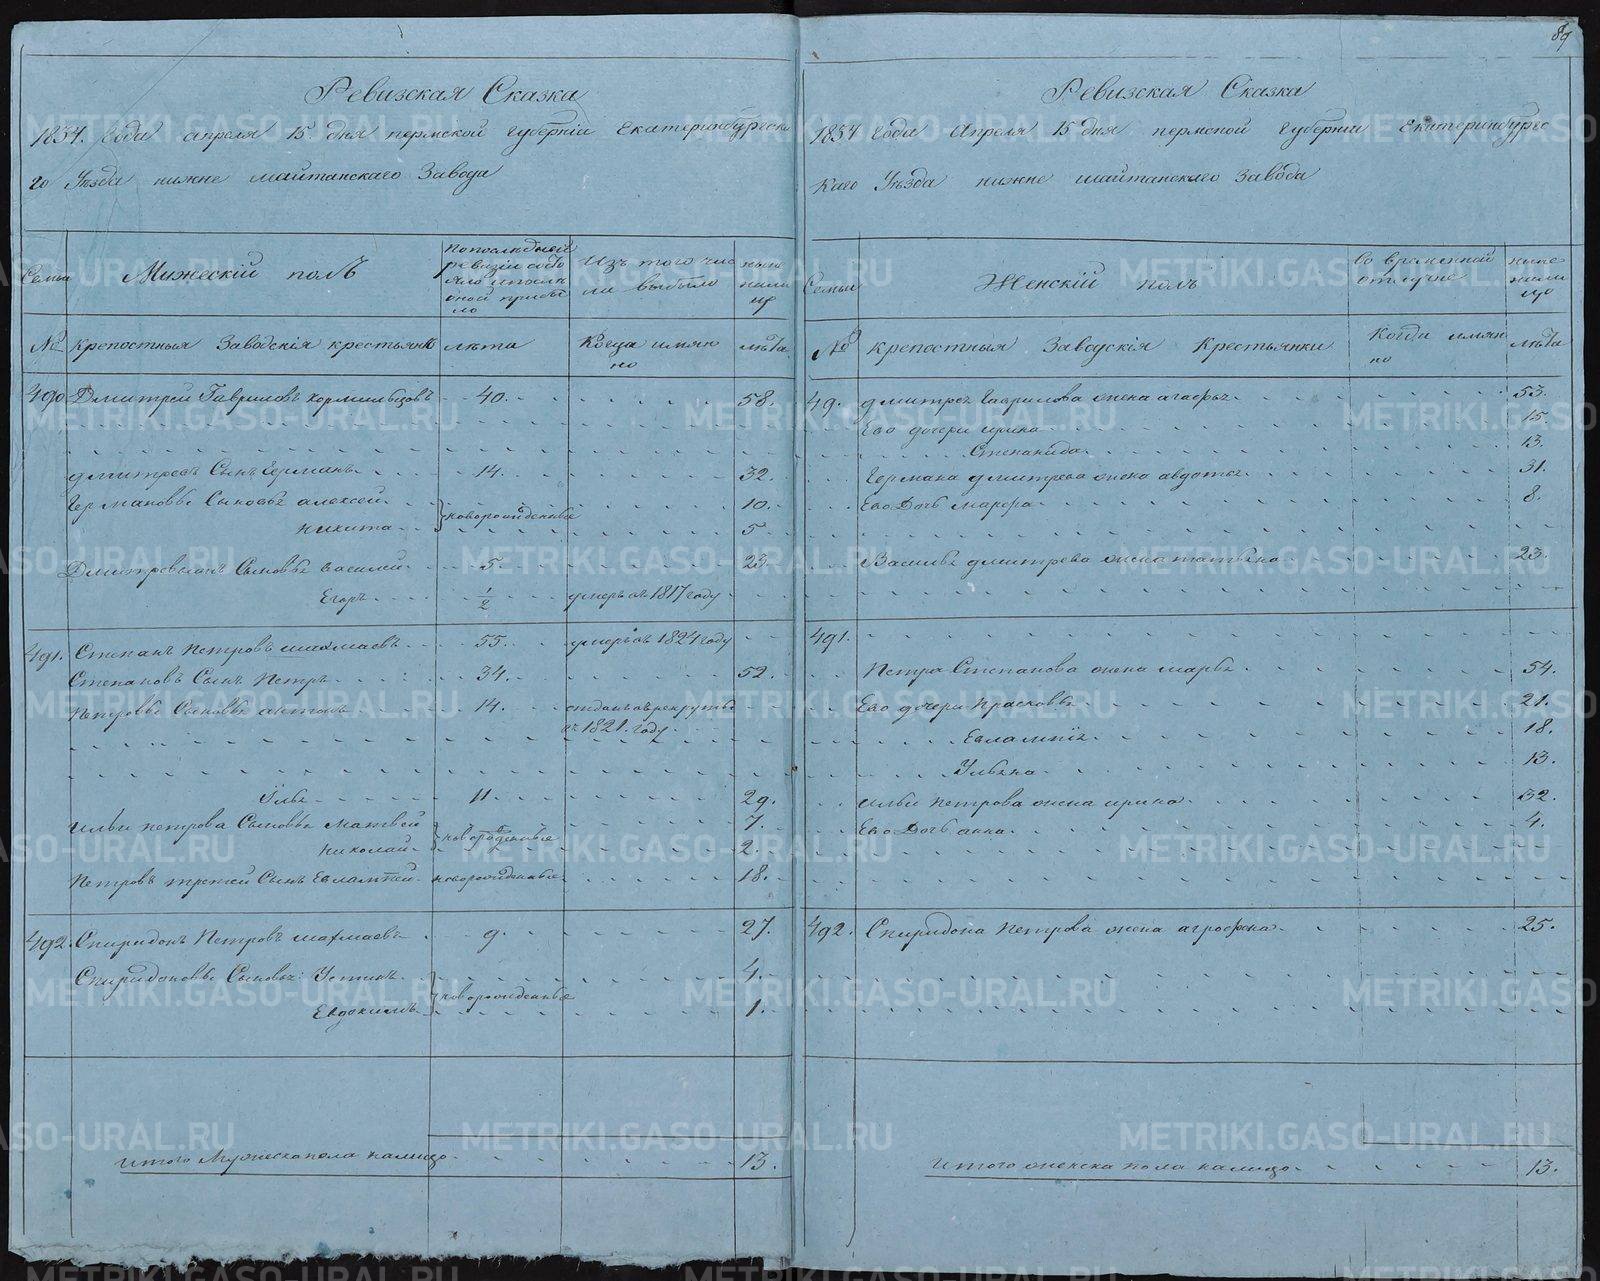 89
Ревизская Сказка
1834. Года апреля 15 дня пермской губерніи Екатеринбургска
го Уезда нижне шайтанскаго Завода
Семьи
Мужескій полъ
По последней ревизіи состо
яло и после
оной прибы
ло
Изъ того чис
ла выбыло
ныне
на ли
цо
№ крепостныя Заводскія крестьяне
лета
Когда имян
но
лета
490 Дмитрей Гавриловъ Кормильцовъ 40. 58.
Дмитреевъ Сынъ Германъ 14. 32.
Германовы Сыновья алексей 10.
Никита новорожденные 5
Дмитревы Сыновья Василей 5. 23
Егоръ 1/2 умеръ въ 1817 году
491. Степанъ Петровъ шахмаевъ 55. умеръ въ 1824 году
Степановъ Сынъ Петръ 34. 52.
Петровы Сыновья антонъ 14. отданъ в рекруты
въ 1821. году
Илья 11. 29.
Ильи петрова Сыновья Матвей 7.
Николай новорожденные 2.
Петровъ третей Сынъ Евлампей новорожденные 18.
492. Спиридонъ Петровъ шахмаевъ 9. 27.
Спиридоновы Сыновья Устинъ 4.
Евдокимъ новорожденные 1.
Итого Мужеска пола налицо 13.
Ревизская Сказка
1834 Года Апреля 15 дня пермской губерніи Екатеринбургс
каго Уезда нижне шайтанскаго завода
Семьи
Женскій полъ
Во временной
отлучке
ныне
на ли
цо
№ крепостныя Заводскія Крестьянки
Когда имян
но
лета
49. Дмитрея Гаврилова жена агафья 53.
Ево дочери ирина 15.
Степанида 13.
Германа дмитрева жена авдотья 31.
Ево Дочь марфа 8.
Василья дмитрева жена татьяна 23.
491.
Петра Степанова жена марья 54.
Ево дочери Прасковья 21.
Евлампія 18.
Ульяна 13.
Ильи петрова жена ирина 32.
Ево Дочь анна 4.
492. Спиридона Петрова жена агрофена 25.
Итого женска пола налицо 13.
METRIKI.GASO-URAL.RU